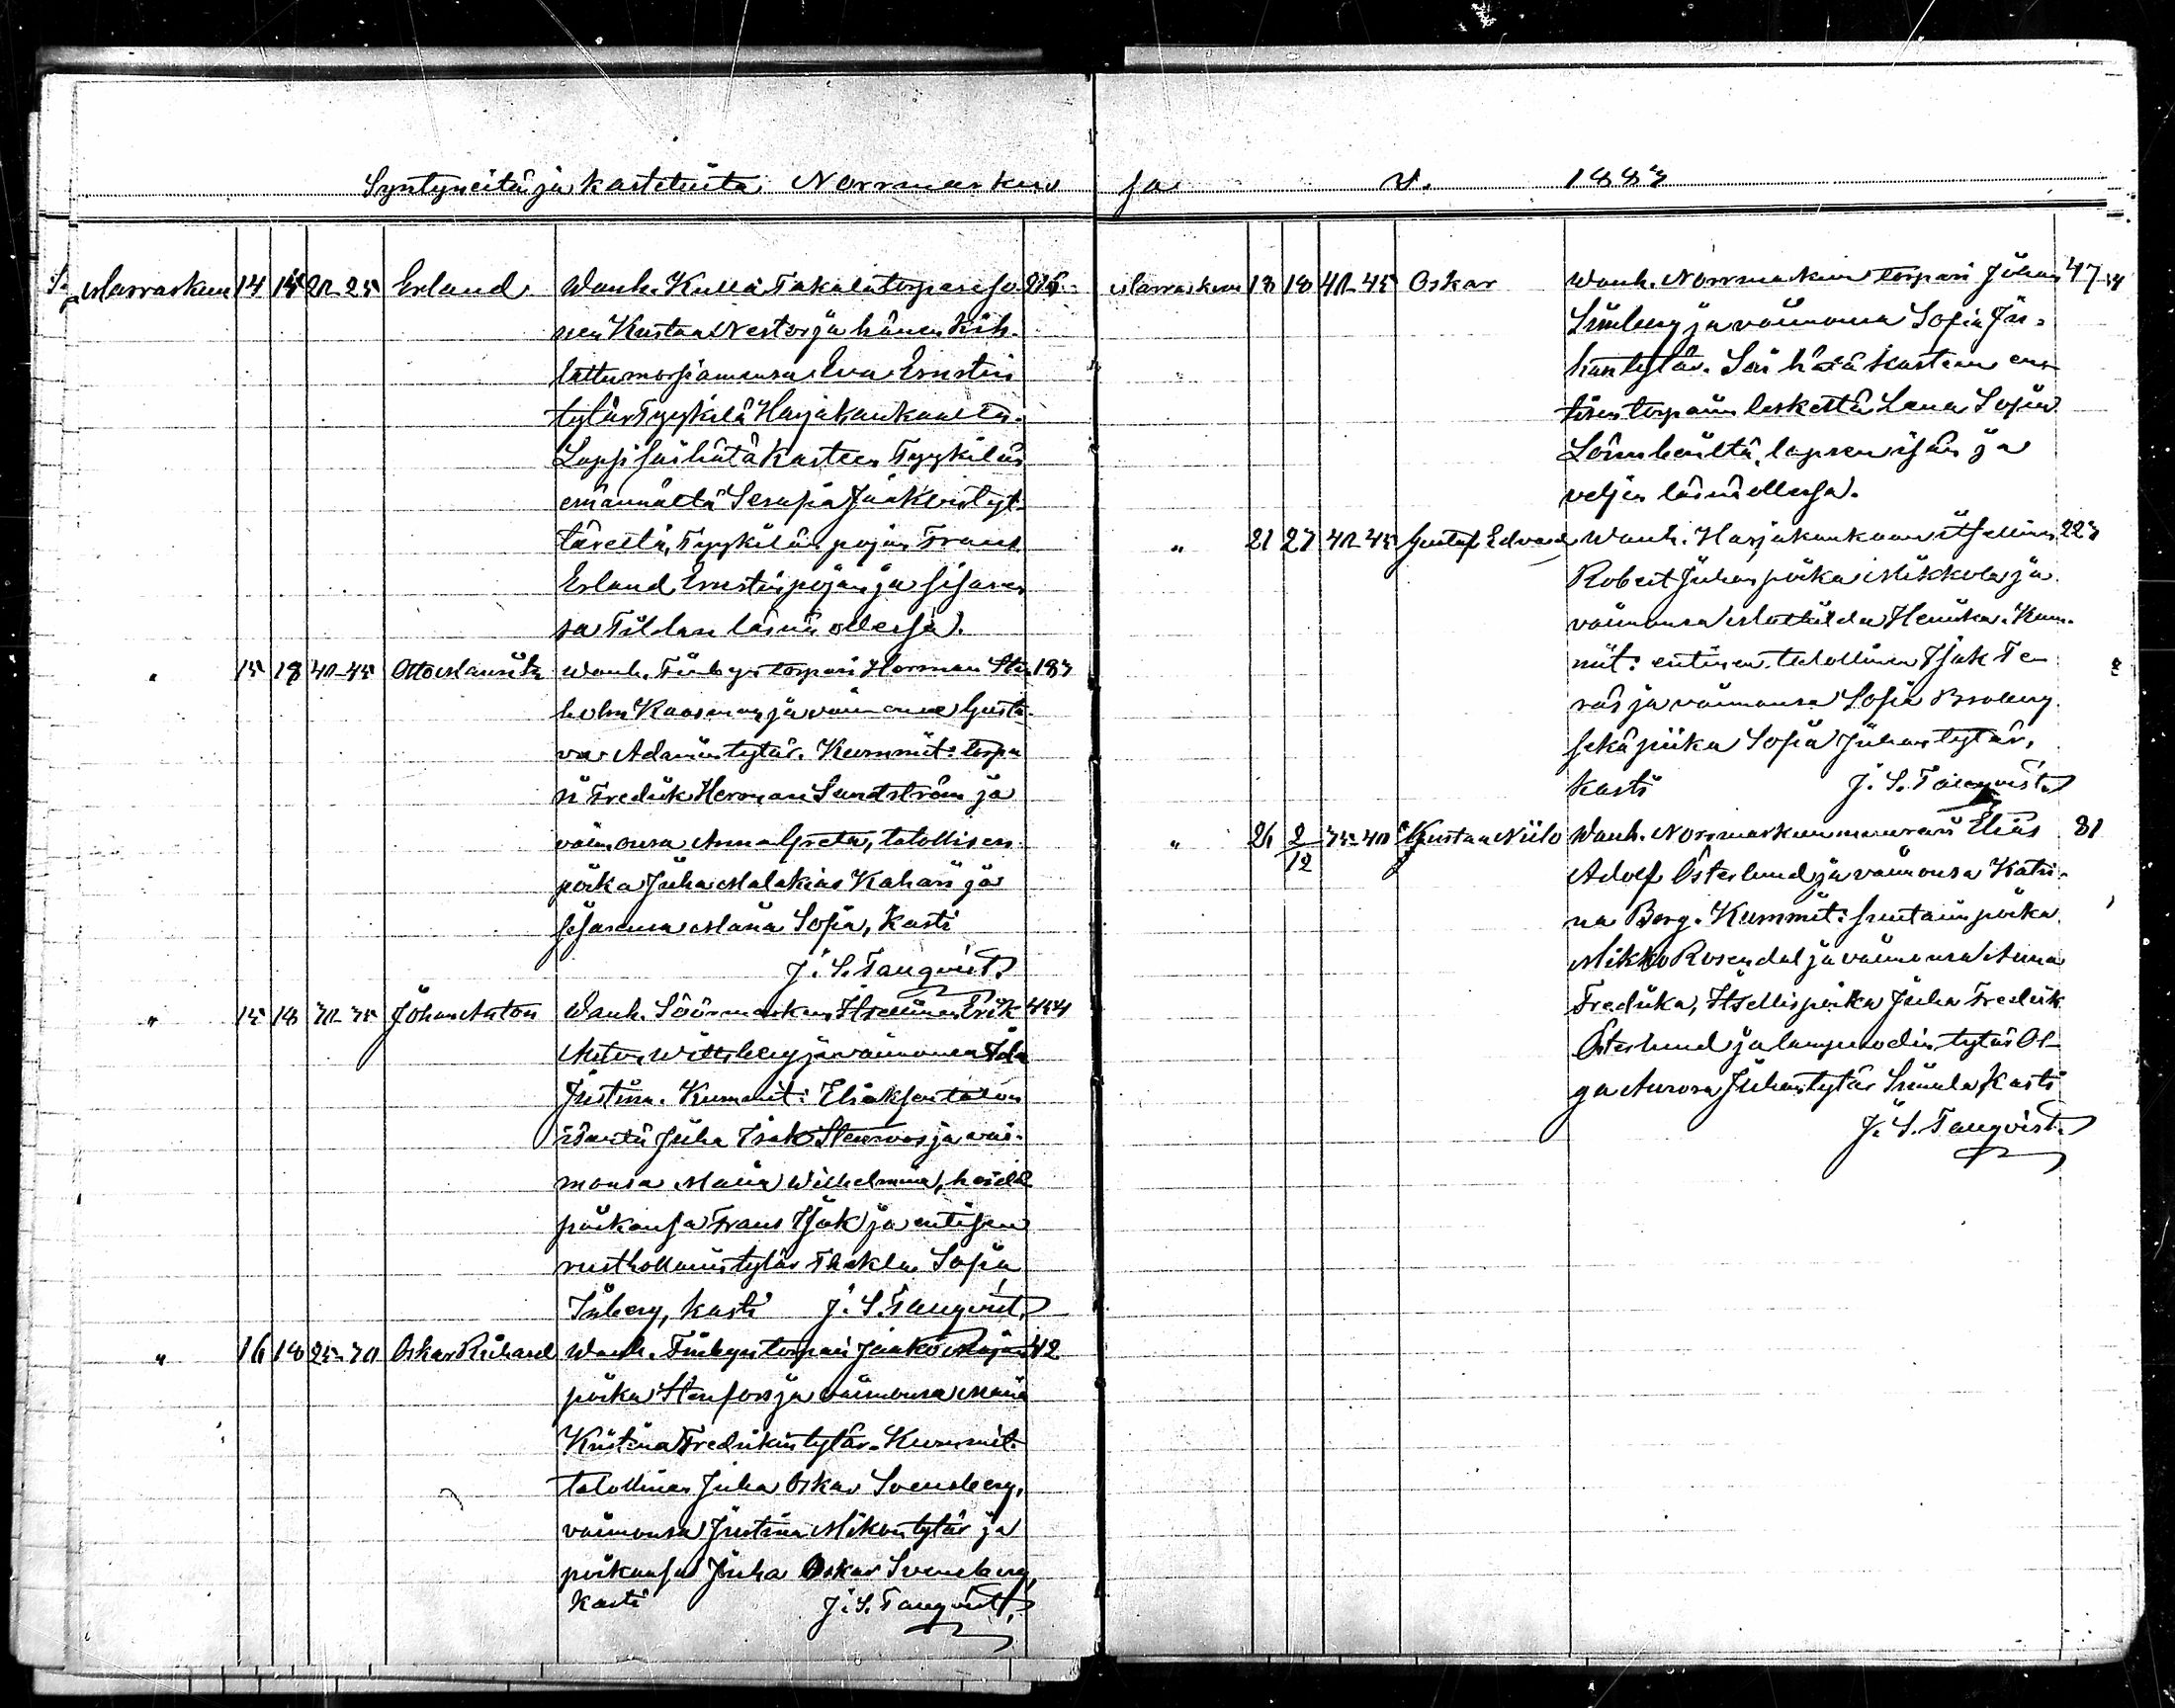 Syntyneitä ja kastetuita Norrmarkun
sa v. 1883
Marraskuu 14 14 20-25 Erland Wanh. Kullaa Takala torparista 216
nen Kustaa Nestor ja hänen kih-
lattu morsiamensa Eva Ernstin
tytär Tyykilä Harjakankaalta.
Lapsi sai hätäkasteen Tyykilän
emännältä Serafia Jaakontyt-
täreltä, Tyykilän pojan Frans
Erland Ernstinpojan ja sisaren
sa Tildan läsnä ollessa.
" 15 18 40-45 Otto Mauritz Wanh. Finbyn torpari Herman Sten 183
holm Kaasmarku ja vaimonsa Gusta-
va Adamintytär. Kummit: torpa
ri Fredrik Herman Sundström ja
vaimonsa Anna Greta, talollisen
poika Juha Malakias Kahari ja
sisarensa Maria Sofia, kasti
J. S. Tanqvist.
" 15 18 30-35 Johan Anton Wanh. Söörmarkun Itsellinen Erik 454
Anton Wittsberg ja vaimonsa Ida
Justina. Kummit: Eliaksen talon
isäntä Juha Isak Stenroos ja vai-
monsa Maria Wilhelmina, heidän
poikansa Frans Isak ja entisen
rusthollarintytär Thekla Sofia
Isberg, kasti J. S. Tanqvist.
" 16 18 25-30 Oskar Richard Wanh. Finbyn torpari Jaakko 42
poika Stenfors ja vaimonsa Maria
Kristina Fredrikintytär. Kummit:
talollinen Juha Oskar Svensberg,
vaimonsa Justina Mikontytär ja
poikansa Juha Oskar Svensberg,
kasti J. S. Tanqvist.
Marraskuu 18 18 40-45 Oskar Wanh. Norrmarkun torpari Johan 47
Grönberg ja vaimonsa Sofia Ju-
hantytär. Sai hätäkasteen en-
tisen torparin leskeltä Lena Sofia
lapsen isän ja
veljen läsnä ollessa.
" 21 27 40-45 Gustaf Edvard Wanh. Harjakankaan itsellinen 223
Robert Juhanpoika Mikkola ja
vaimonsa Mathilda Henrika. Kum-
mit: entinen talollinen Isak Te
räs ja vaimonsa Sofia Broberg
sekä piika Sofia Juhantytär,
kasti J. S. Tanqvist.
" 26 2/12 35-40 Kustaa Niilo Wanh. Norrmarkun muurari Elias 81
Adolf Österlund ja vaimonsa Katri-
na Berg. Kummit: suutarin poika
Mikko Rosendal ja vaimonsa Anna
Fredrika, Itsellispoika Juha Fredrik
Österlund ja lampuodin tytär Ol-
ga Aurora Juhantytär kasti
J. S. Tanqvist.